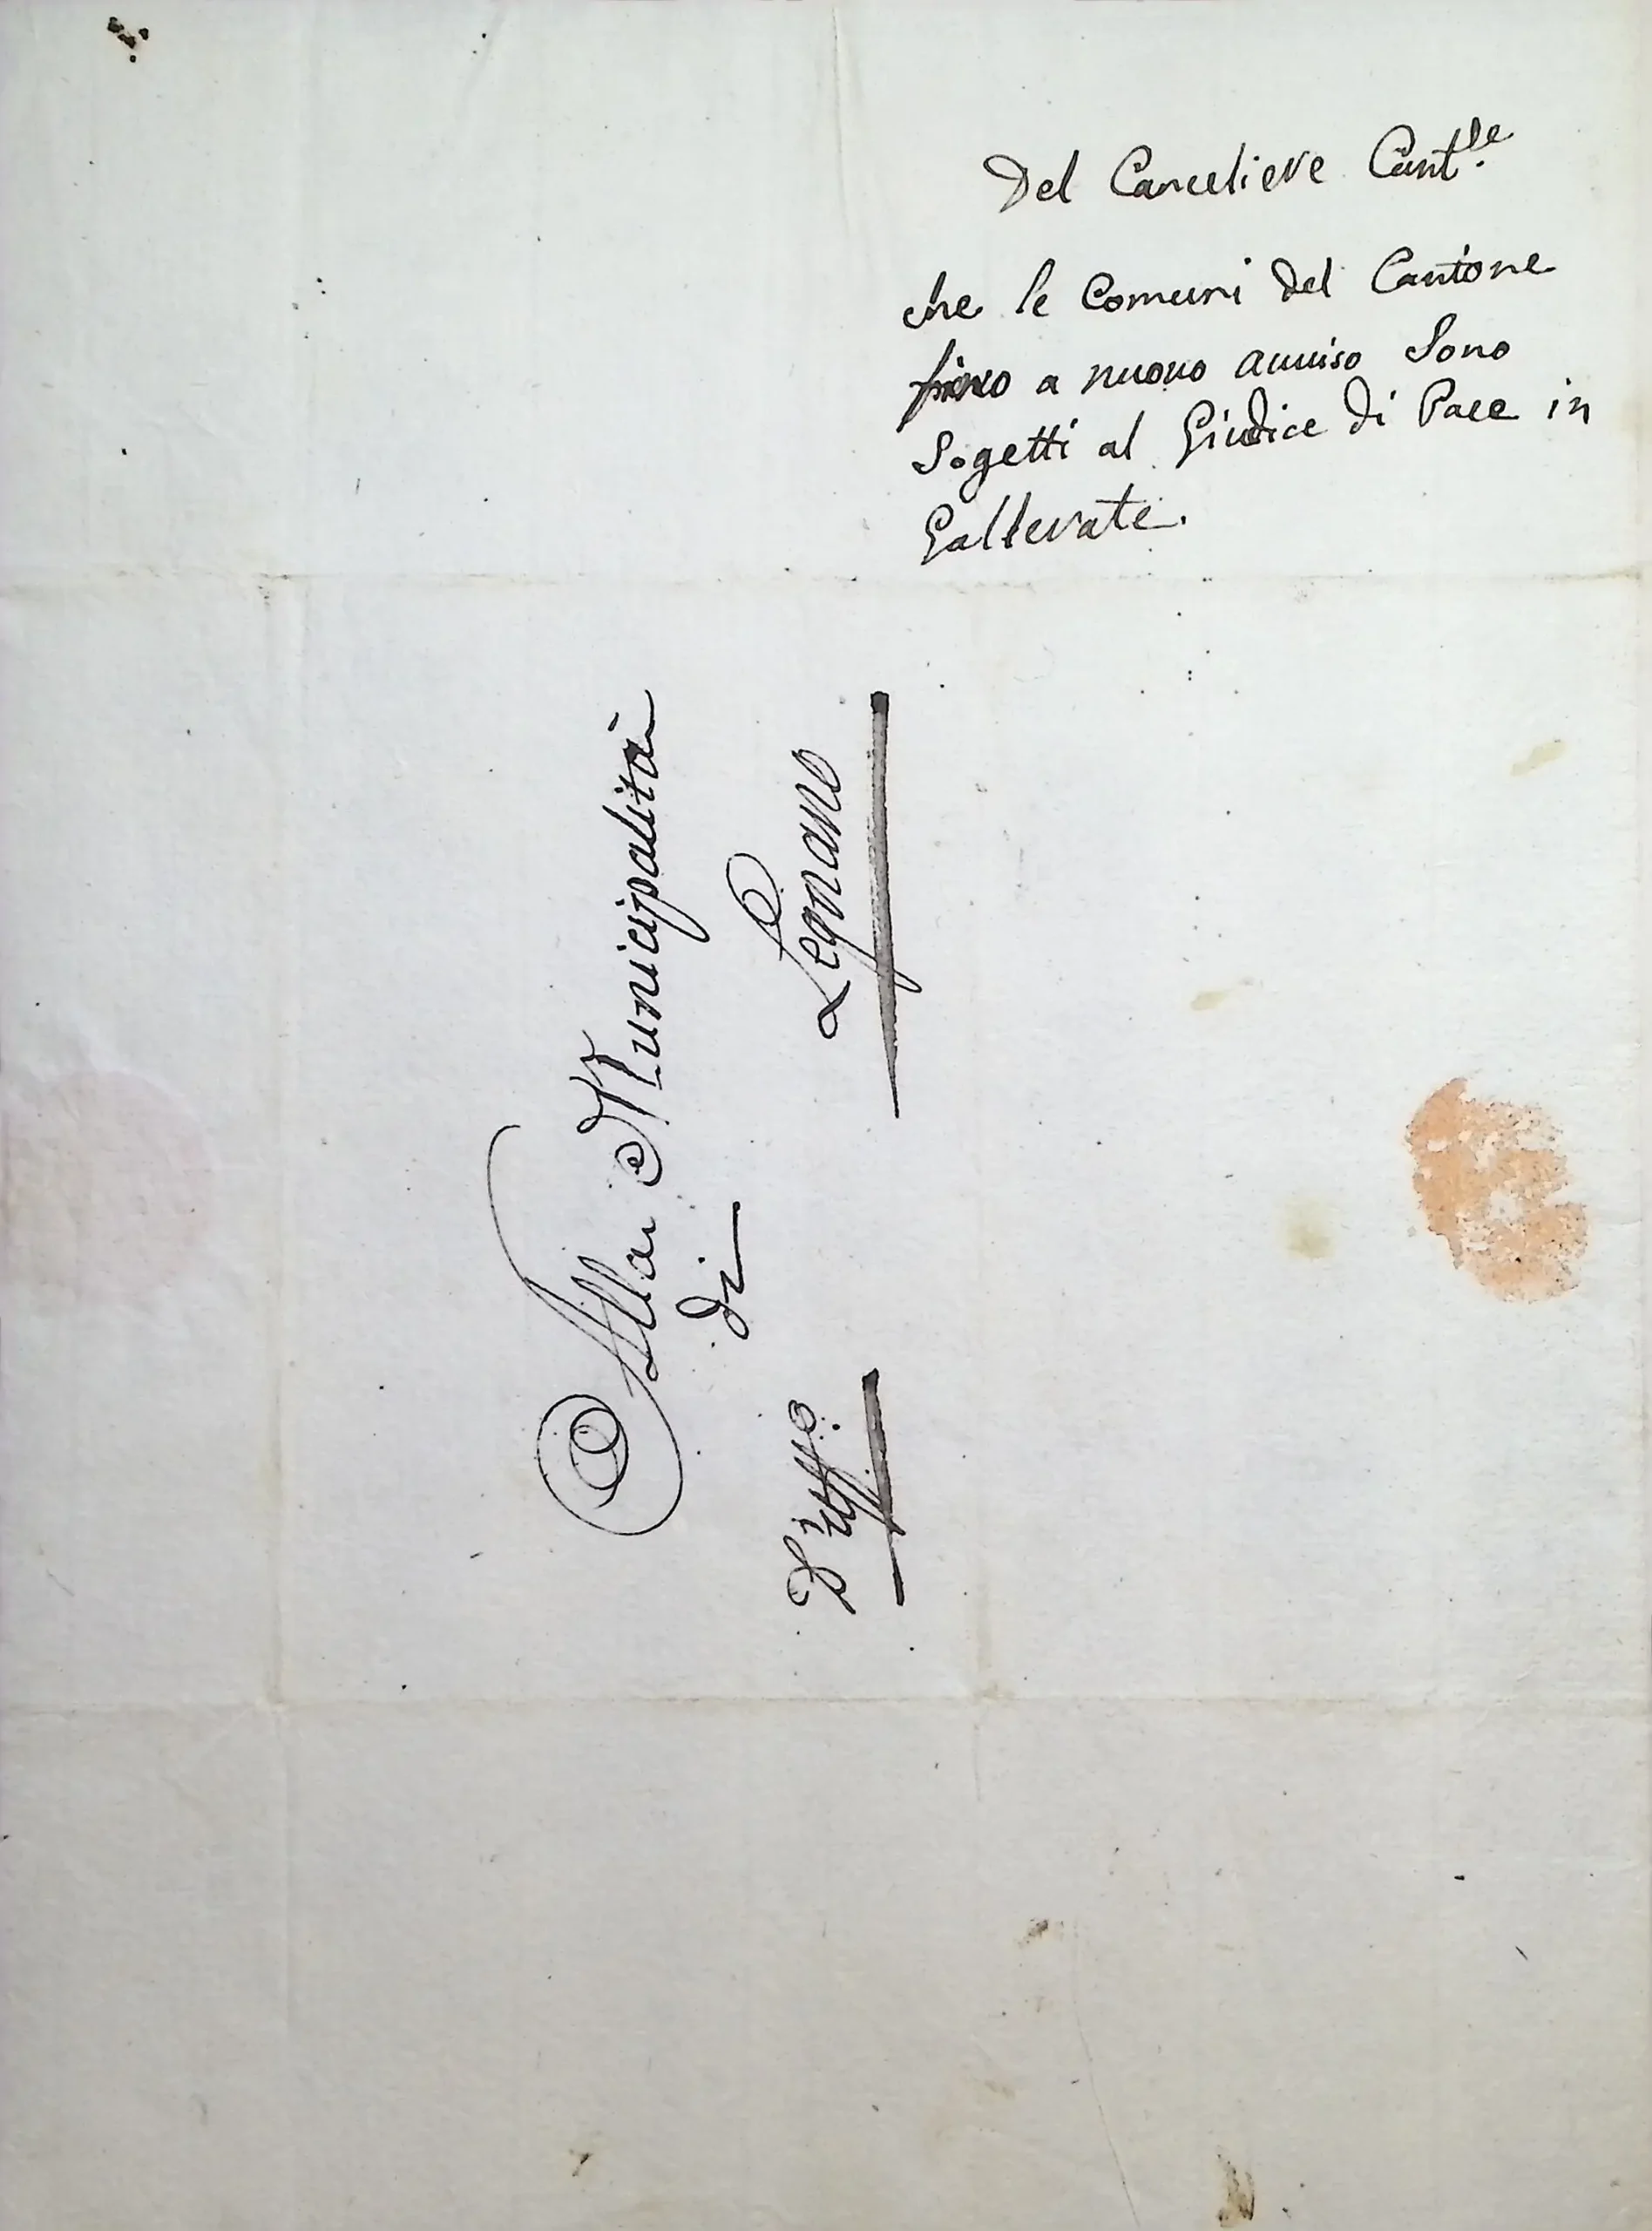 Del Canceliere Cant.le
che le Comuni del Cantone
fino a nuovo avviso Sono
Sogetti al Giudice di Pace in
Gallerate.
Alla Municipalità
di
D'uff.o Legnano